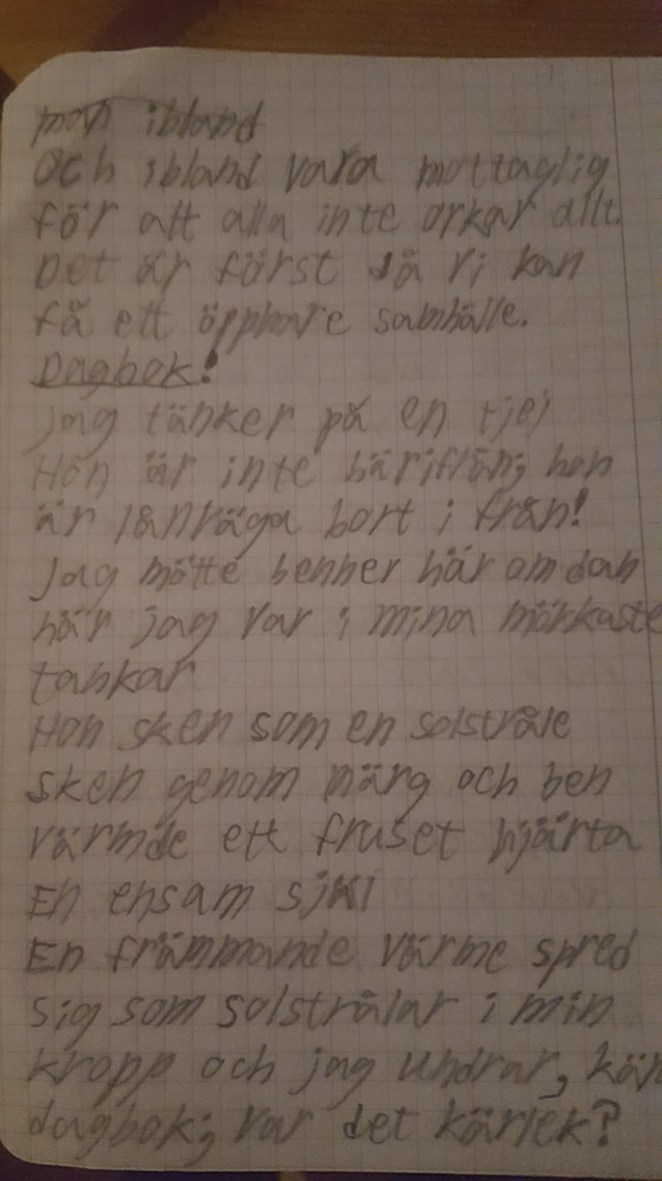 man ibland
Och ibland vara mottaglig
för att alla inte orkar allt.
Det är först då vi kan
få ett öppnare samhälle.
Dagbok!
Jag tänker på en tjej
Hon är inte härifrån; hon
är långväga bort i från!
Jag mötte henner här om dan
när jag var i mina mörkaste
tankar
Hon sken som en solstråle
sken genom märg och ben
värmde ett fruset hjärta
En ensam själ
En främmande värme spred
sig som solstrålar i min
kropp och jag undrar, kär
dagbok; var det kärlek?